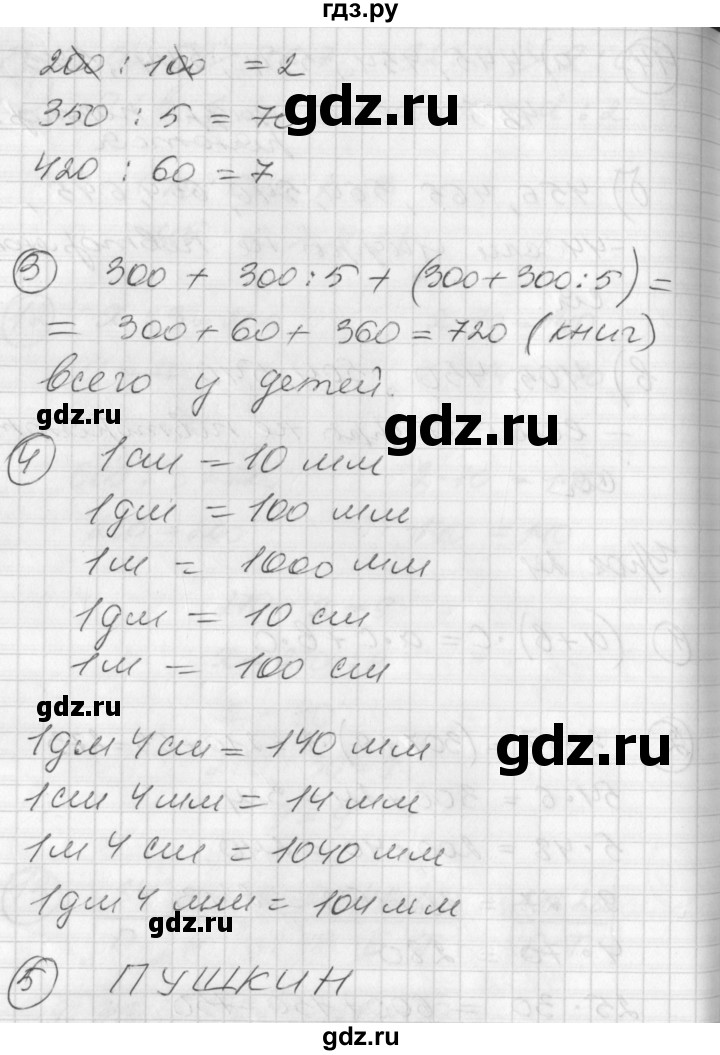 гдз.ру
200 : 100 = 2
350 : 5 = 70
gdz.ru
420 : 60 = 7
3 300 + 300:5 + (300+300:5) =
= 300+60+ 360 = 720 (книг)
всего у детей.
gdz.ru
gdz.ru
4 1см = 10 мм
1дм = 100 мм
1м = 1000 мм
1дм = 10 см
1м = 100 см
gdz.ru
gdz.ru
1дм 4см = 140 мм
1см 4мм = 14 мм
1м 4 см = 1040 мм
1дм 4 мм = 104 мм
gdz.ru
5 ПУШКИН
gdz.ru